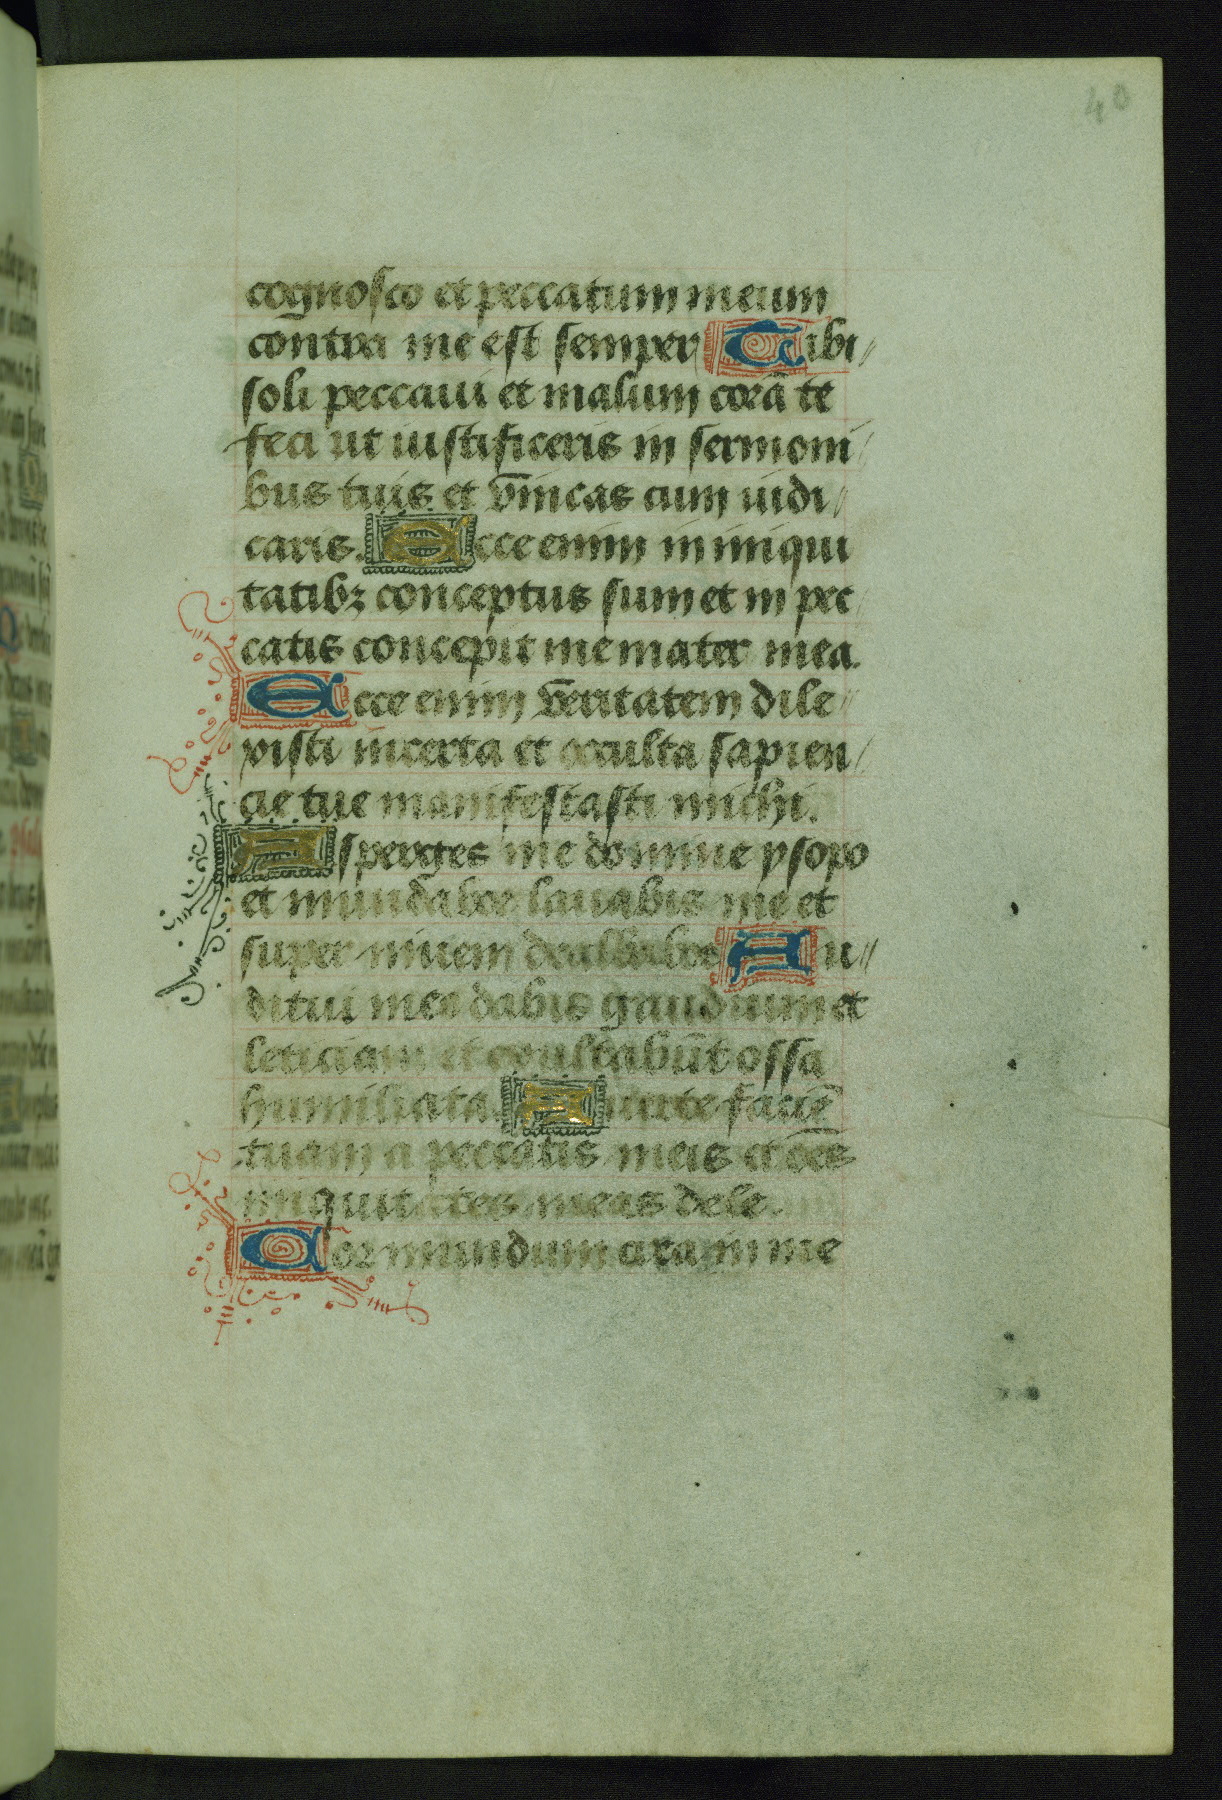 40
cognosco et peccatum meum
contra me est semper Tibi
soli peccaui et malum corã te
feci ut iustificeris in sermoni
bus tuis et v̄incas cum iudi
caris. Ecce enim in iniqui
tatibꝫ conceptus sum et in pec
catis concepit me mater mea.
Ecce enim v̄eritatem dile
xisti incerta et occulta sapien
cie tue manifestasti michi.
Asperges me domine ysopo
et mundabor lauabis me et
super niuem dealbabor Au
ditui meo dabis gaudium et
leticiam et exultabūt ossa
humiliata. Auerte faciē
tuam a peccatis meis et oēs
iniquitates meas dele.
Cor mundum crea in me